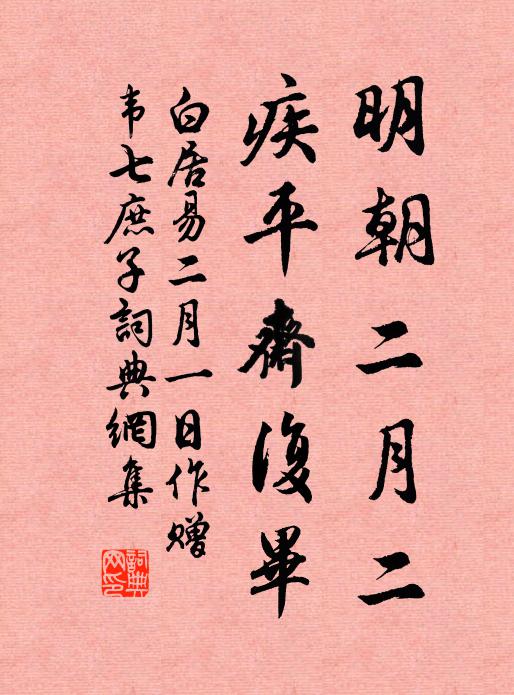 明朝二月二
疾平齋復畢
白居易二月一日作贈
韦七庶子詞典網集
詞典網印